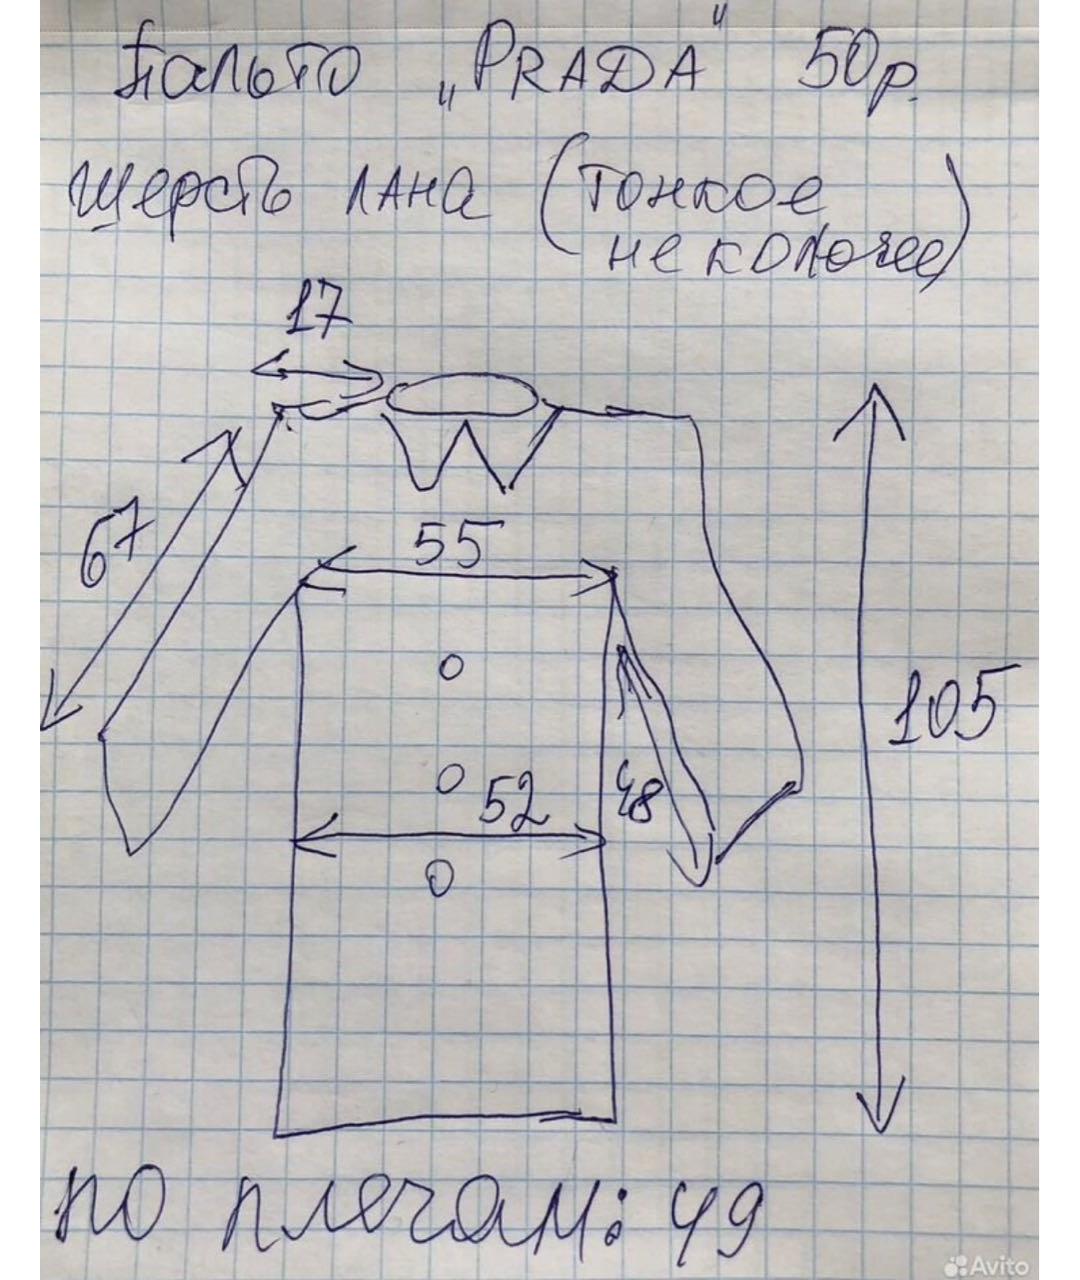 Пальто „PRADA" 50р.
шерсть лана (тонкое
не колючее)
17
67
55
105
52
48
по плечам: 49
Avito